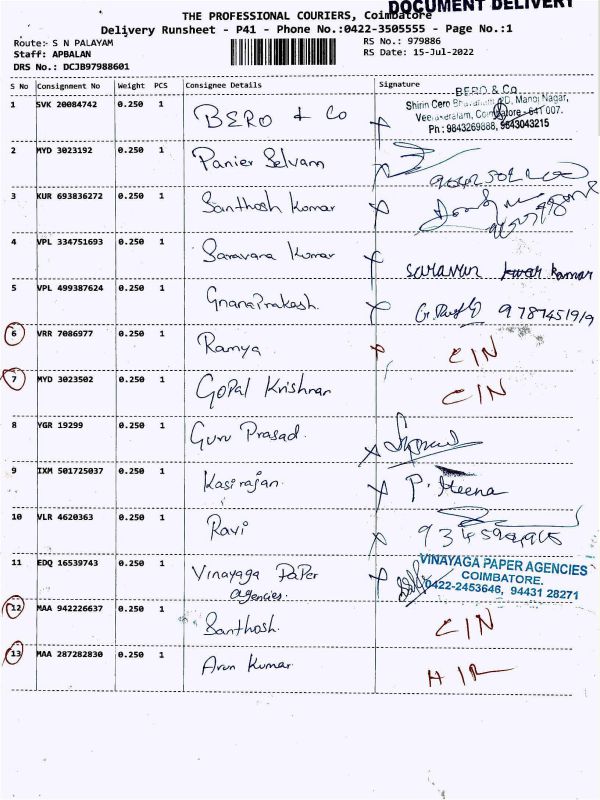 DOCUMENT DELIVERY
THE PROFESSIONAL COURIERS, Coimbatore
Delivery Runsheet - P41 - Phone No.:0422-3505555 - Page No.:1
Route: S N PALAYAM RS No.: 979886
Staff: APBALAN RS Date: 15-Jul-2022
DRS No.: DCJB97988601
S No Consignment No Weight PCS Consignee Details Signature
1 SVK 20084742 0.250 1 BERO & Co
BERO & Co
Shirin Cero RD, Manoj Nagar,
Veerakeralam, Coimbatore - 641 007.
Ph : 9843269888, 9843043215
2 MYD 3023192 0.250 1 Panier Selvam
3 KUR 693836272 0.250 1 Santhosh Kumar
4 VPL 334751693 0.250 1 Saravana Kumar
5 VPL 499387624 0.250 1 GnanaPrakash. 9787451919
6 VRR 7086977 0.250 1 Ramya CIN
7 MYD 3023502 0.250 1 Gopal Krishnan CIN
8 YGR 19299 0.250 1 Guru Prasad.
9 IXM 501725037 0.250 1 Kasirajan. P. Meena
10 VLR 4620363 0.250 1 Ravi
11 EDQ 16539743 0.250 1 Vinayaga Paper
agencies.
VINAYAGA PAPER AGENCIES
COIMBATORE.
0422-2453646, 94431 28271
12 MAA 942226637 0.250 1 Santhosh. CIN
13 MAA 287282830 0.250 1 Arun Kumar